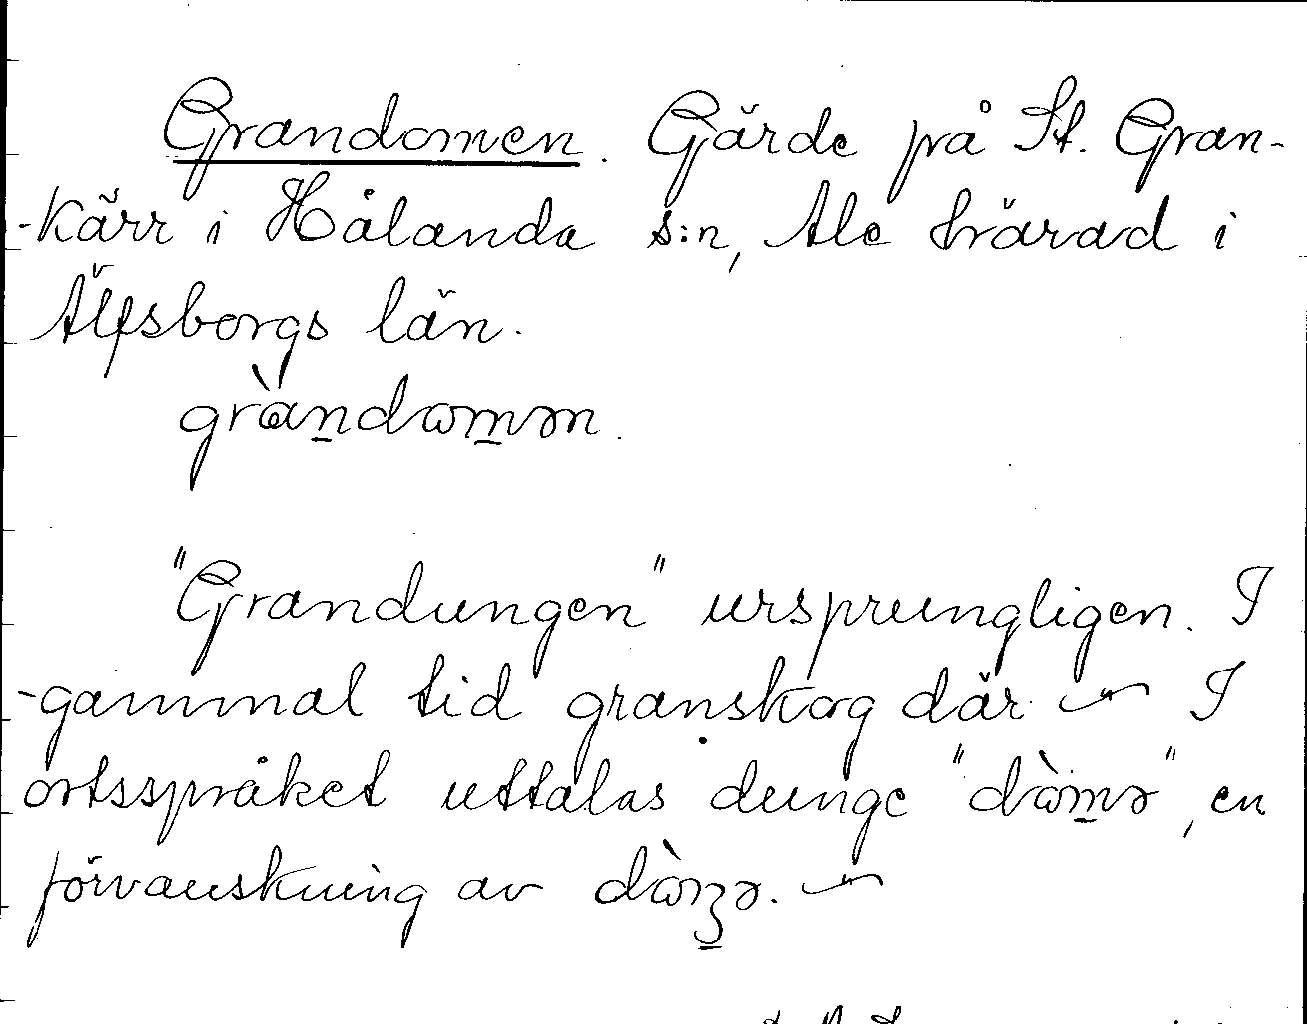 Grandomen. Gärde på St. Gran-
-kärr i Hålanda s:n, Ale härad i
Älfsborgs län.
gràn̲dɷm̲ən.
"Grandungen" ursprungligen. I
-gammal tid granskog där. ~ I
ortsspråket uttalas dunge "dɷ̀m̲ə", en
förvanskning av dɷ̀ŋ̲ə. ~